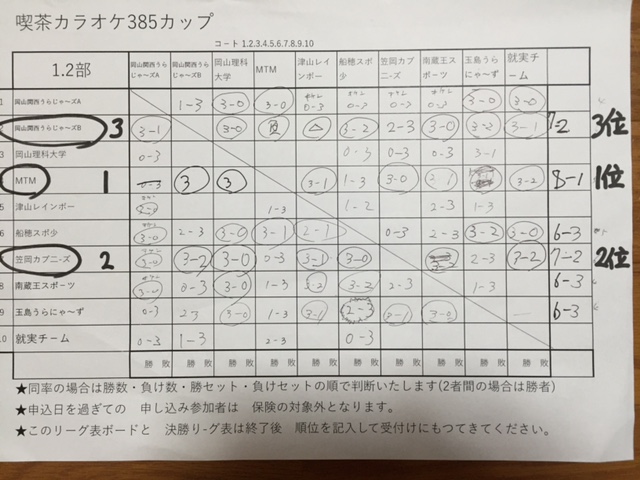 喫茶カラオケ385カップ
コート 1.2.3.4.5.6.7.8.9.10
1.2部 岡山関西うらじゃ～ズA 岡山関西うらじゃ～ズB 岡山理科大学 MTM 津山レインボー 船穂スポ少 笠岡カブニーズ 南蔵王スポーツ 玉島うらにゃ～ず 就実チーム
1 岡山関西うらじゃ～ズA 1-3 3-0 3-0 0-3 0-3 0-3 0-3 3-0 3-0
岡山関西うらじゃ～ズB 3 3-1 3-0 3-2 2-3 3-0 3-2 3-1 7-2 3位
3 岡山理科大学 0-3 0-3 0-3 0-3 3-1
MTM 1 0-3 3 3 3-1 1-3 3-0 2-1 3-2 8-1 1位
5 津山レインボー 1-3 1-2 2-3 1-3
6 船穂スポ少 3-0 2-3 3-0 3-1 2-1 0-3 2-3 3-2 3-0 6-3
笠岡カブニーズ 2 3-0 3-2 3-0 0-3 3-1 3-0 2-3 3-2 7-2 2位
8 南蔵王スポーツ 3-0 0-3 3-0 1-3 3-2 3-2 2-3 1-3 6-3
9 玉島うらにゃ～ず 0-3 2-3 3-0 1-3 3-1 2-3 3-1 3-0 6-3
10 就実チーム 0-3 1-3 2-3 0-3
勝 敗 勝 敗 勝 敗 勝 敗 勝 敗 勝 敗 勝 敗 勝 敗 勝 敗 勝 敗
★同率の場合は勝数・負け数・勝セット・負けセットの順で判断いたします(2者間の場合は勝者)
★申込日を過ぎての 申し込み参加者は 保険の対象外となります。
★このリーグ表ボードと 決勝リ-グ表は終了後 順位を記入して受付けにもつてきてください。